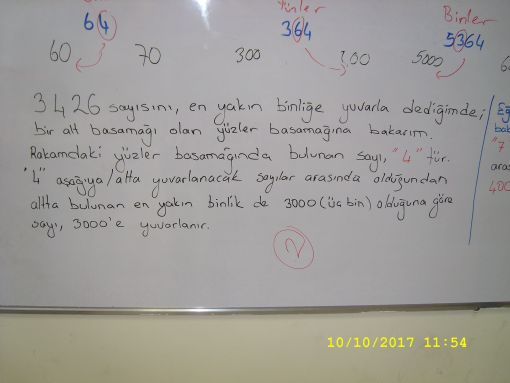 Yüzler
Binler
64
364
5364
60
70
300
400
5000
3426 sayısını, en yakın binliğe yuvarla dediğimde;
bir alt basamağı olan yüzler basamağına bakarım.
Rakamdaki yüzler basamağında bulunan sayı, "4" tür.
"4" aşağıya/alta yuvarlanacak sayılar arasında olduğundan
altta bulunan en yakın binlik de 3000 (üç bin) olduğuna göre
sayı, 3000'e yuvarlanır.
2
"7
400
10/10/2017 11:54